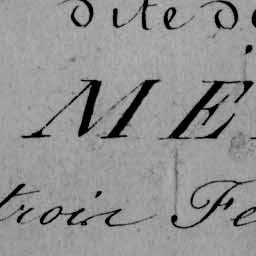 dite de
ME
troin Fe